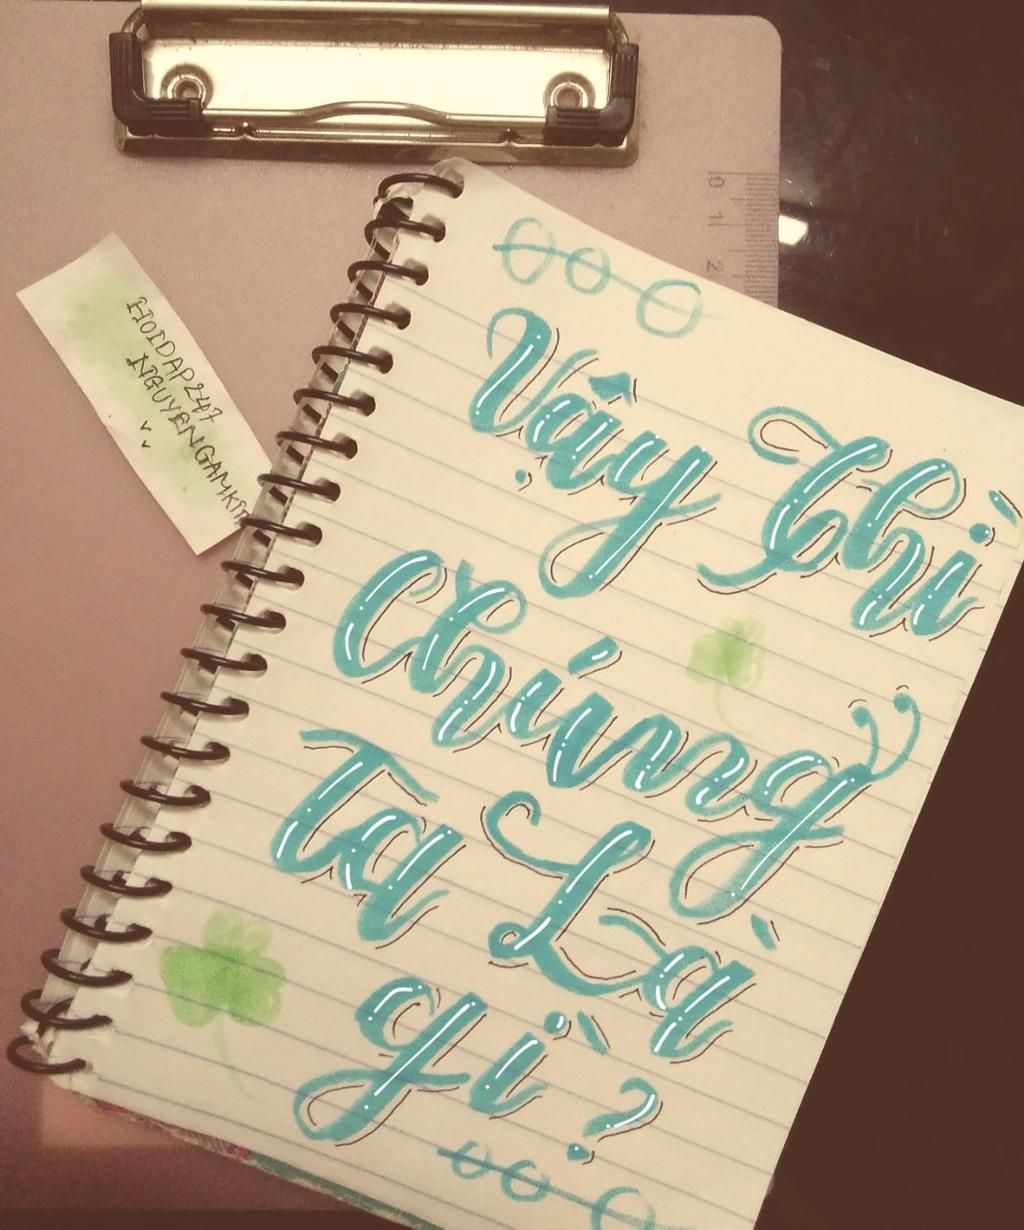 HOIDAP247
NGUYENGAMKIM
0
1
2
Vậy Thì
Chúng
Ta Là
gì?